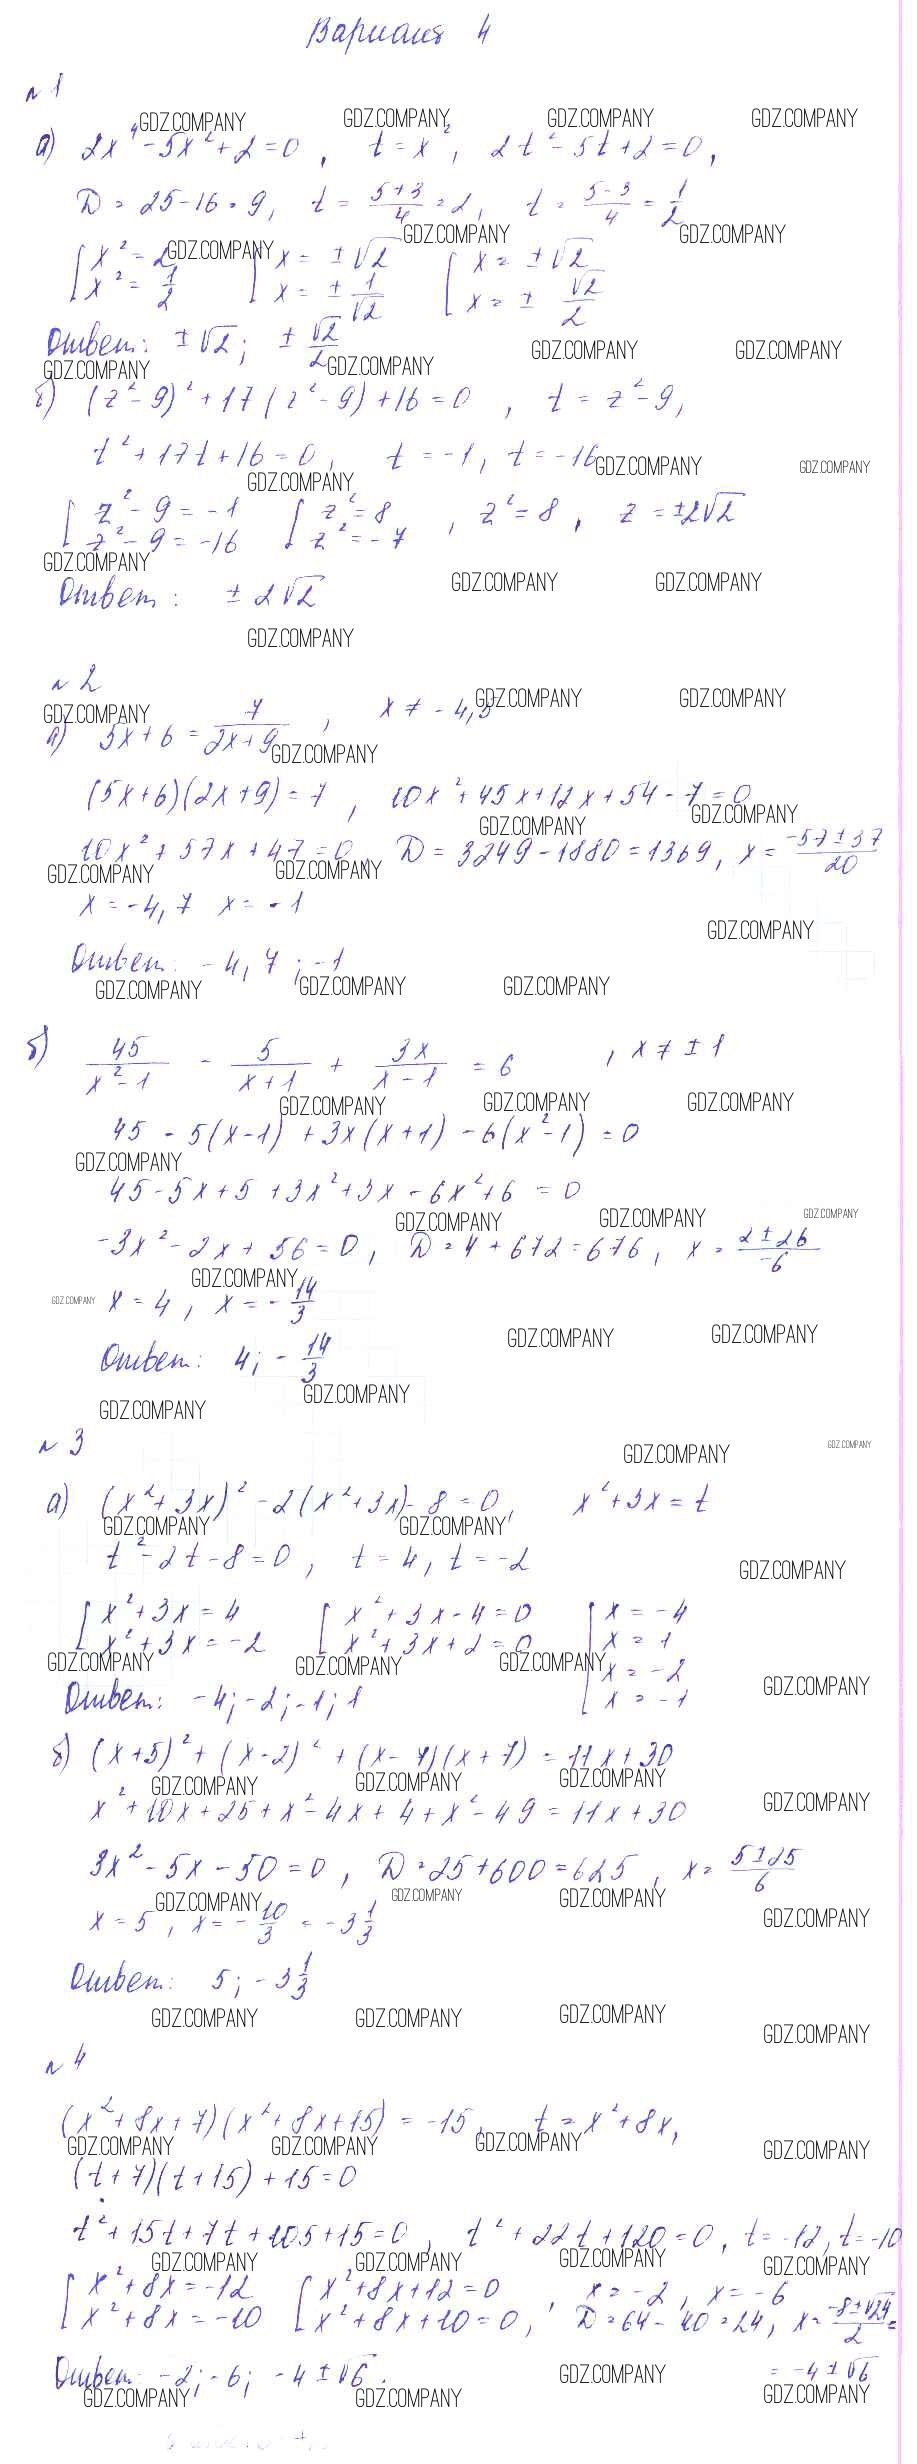 Вариант 4
№ 1
а) 2x⁴ - 5x² + 2 = 0 , t = x² , 2t² - 5t + 2 = 0 ,
D = 25 - 16 = 9 , t = (5+3)/4 = 2 , t = (5-3)/4 = 1/2
[ x² = 2 [ x = ±√2 [ x = ±√2
x² = 1/2 x = ± 1/√2 x = ± √2/2
Ответ: ±√2 ; ± √2/2
б) (z² - 9)² + 17(z² - 9) + 16 = 0 , t = z² - 9 ,
t² + 17t + 16 = 0 , t = -1 , t = -16
[ z² - 9 = -1 [ z² = 8 , z² = 8 , z = ±2√2
z² - 9 = -16 z² = -7
Ответ: ± 2√2
№ 2
а) 5x + 6 = 7/(2x+9) , x ≠ -4,5
(5x+6)(2x+9) = 7 , 10x² + 45x + 12x + 54 - 7 = 0
10x² + 57x + 47 = 0 , D = 3249 - 1880 = 1369 , x = (-57 ± 37)/20
x = -4,7 x = -1
Ответ: -4,7 ; -1
б) 45/(x²-1) - 5/(x+1) + 3x/(x-1) = 6 , x ≠ ±1
45 - 5(x-1) + 3x(x+1) - 6(x²-1) = 0
45 - 5x + 5 + 3x² + 3x - 6x² + 6 = 0
-3x² - 2x + 56 = 0 , D = 4 + 672 = 676 , x = (2 ± 26)/-6
x = 4 , x = -14/3
Ответ: 4 ; -14/3
№ 3
а) (x² + 3x)² - 2(x² + 3x) - 8 = 0 , x² + 3x = t
t² - 2t - 8 = 0 , t = 4 , t = -2
[ x² + 3x = 4 [ x² + 3x - 4 = 0 [ x = -4
x² + 3x = -2 x² + 3x + 2 = 0 x = 1
x = -2
x = -1
Ответ: -4 ; -2 ; -1 ; 1
б) (x+5)² + (x-2)² + (x-7)(x+7) = 11x + 30
x² + 10x + 25 + x² - 4x + 4 + x² - 49 = 11x + 30
3x² - 5x - 50 = 0 , D = 25 + 600 = 625 , x = (5 ± 25)/6
x = 5 , x = -10/3 = -3 1/3
Ответ: 5 ; -3 1/3
№ 4
(x² + 8x + 7)(x² + 8x + 15) = -15 , t = x² + 8x ,
(t+7)(t+15) + 15 = 0
t² + 15t + 7t + 105 + 15 = 0 , t² + 22t + 120 = 0 , t = -12 , t = -10
[ x² + 8x = -12 [ x² + 8x + 12 = 0 , x = -2 , x = -6
x² + 8x = -10 x² + 8x + 10 = 0 , D = 64 - 40 = 24 , x = (-8 ± √24)/2 =
= -4 ± √6
Ответ: -2 ; -6 ; -4 ± √6 .
GDZ.COMPANY